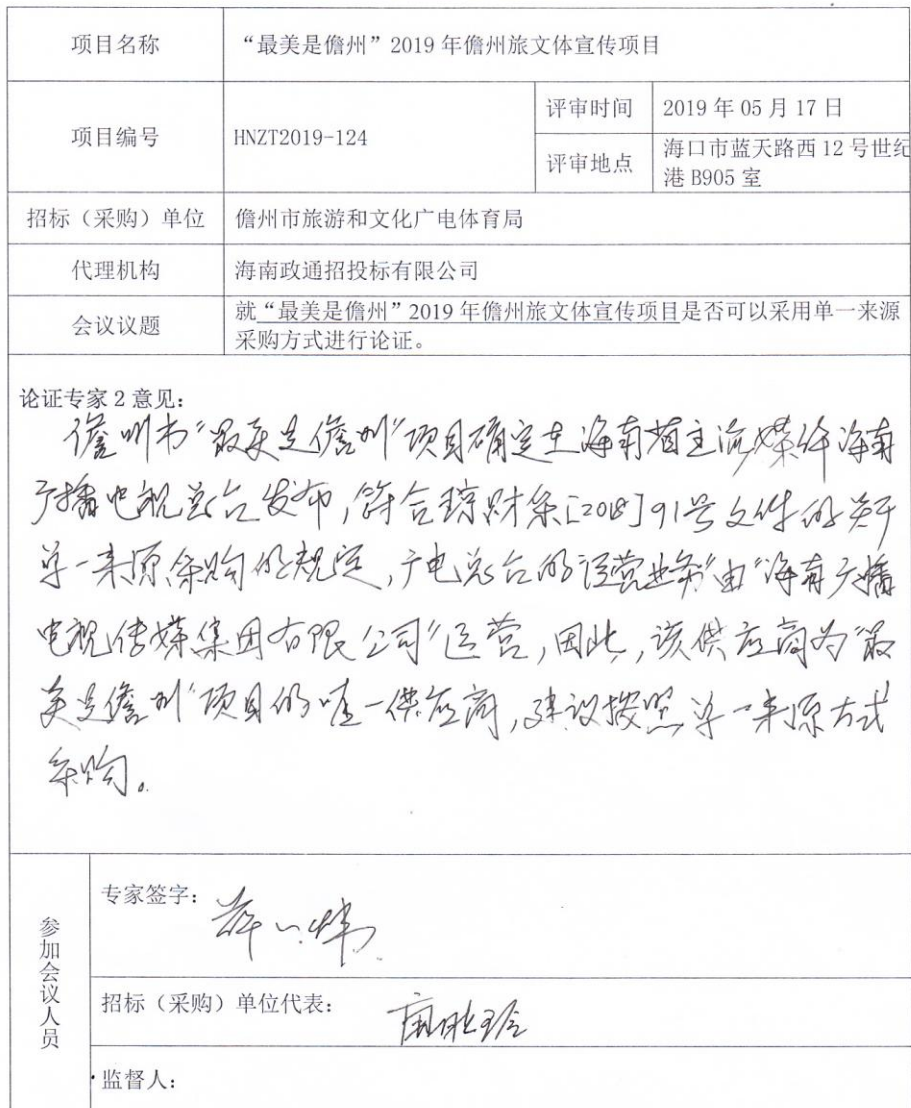 项目名称
“最美是儋州”2019年儋州旅文体宣传项目
项目编号
HNZT2019-124
评审时间
2019年05月17日
评审地点
海口市蓝天路西12号世纪
港B905室
招标（采购）单位
儋州市旅游和文化广电体育局
代理机构
海南政通招投标有限公司
会议议题
就“最美是儋州”2019年儋州旅文体宣传项目是否可以采用单一来源
采购方式进行论证。
论证专家2意见：
儋州市“最美是儋州”项目确定在海南省主流媒体海南
广播电视总台发布，符合琼财采[2018]91号文件的关于
单一来原采购的规定，广电总台的运营业务“由“海南广播
电视传媒集团有限公司”运营，因此，该供应商为“最
美是儋州”项目的唯一供应商，建议按照单一来原方式
采购。
参加会议人员
专家签字：
招标（采购）单位代表：
监督人：